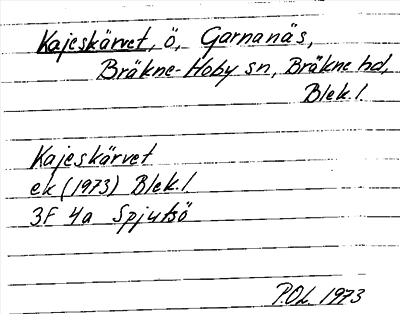 Kajeskärvet, ö, Garnanäs,
Bräkne-Hoby sn, Bräkne hd,
Blek. l.
Kajeskärvet
ek (1973) Blek. l
3F 4a Spjutsö
P.OL. 1973